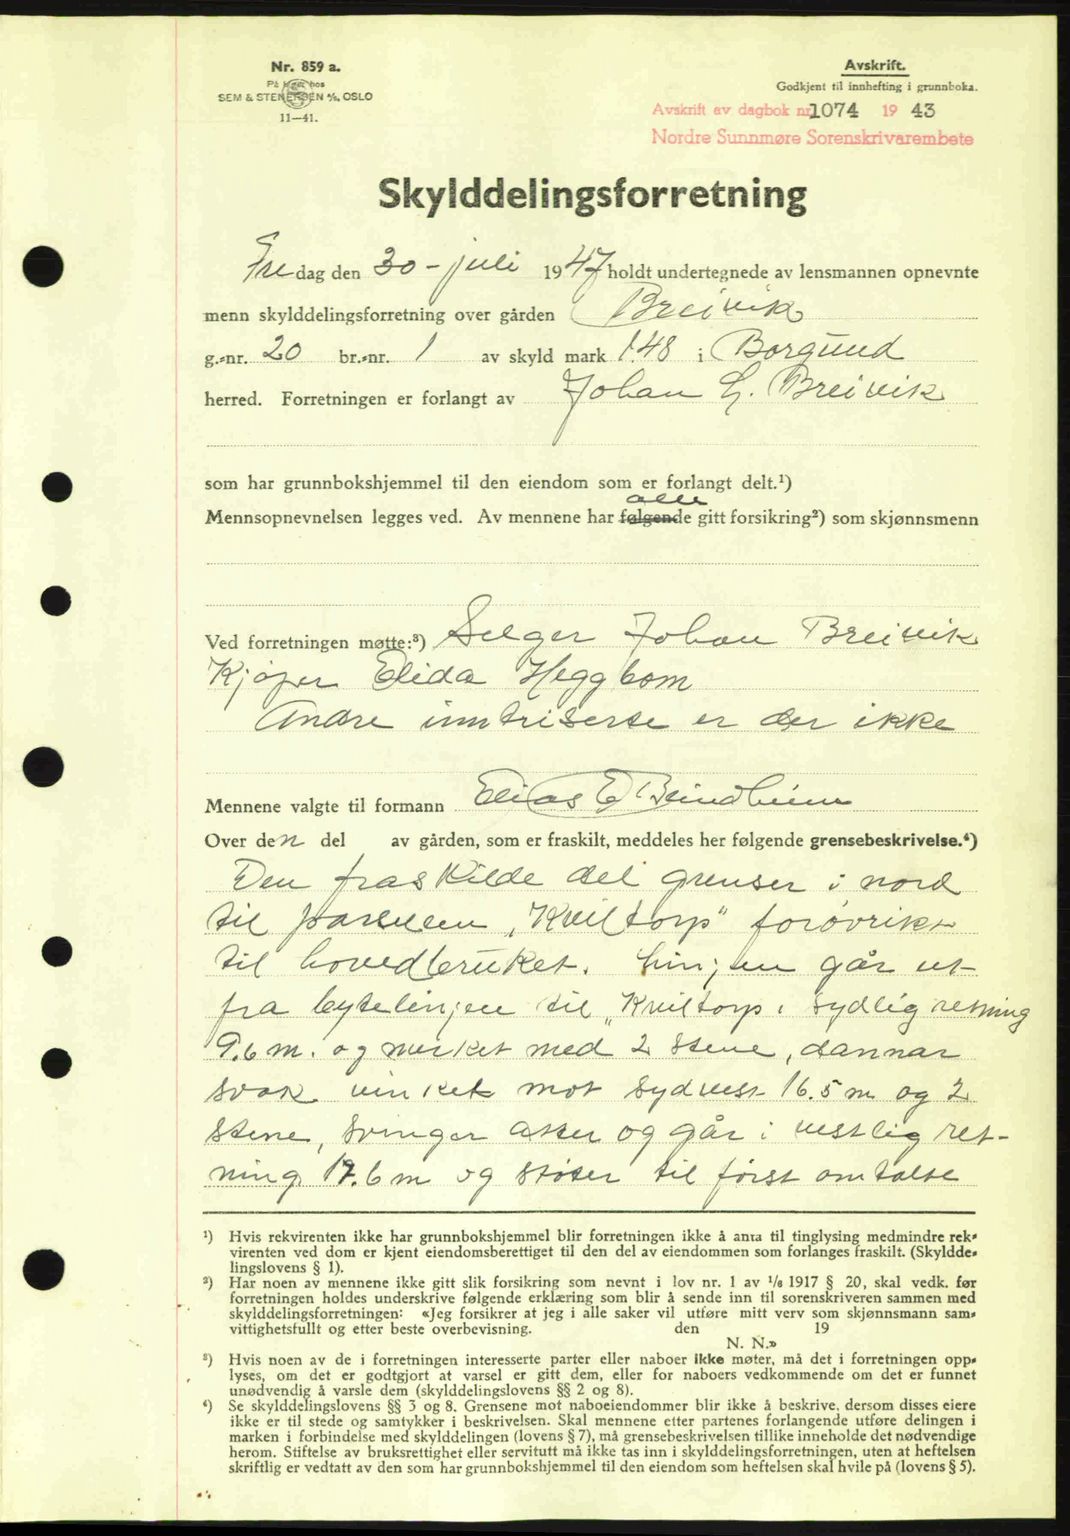 Nr. 859 a.
På lager hos
SEM & STENERSEN A/S, OSLO
11—41.
Avskrift.
Godkjent til innhefting i grunnboka.
Avskrift av dagbok nr. 1074 1943
Nordre Sunnmøre Sorenskrivarembete
Skylddelingsforretning
Fredag den 30 - juli 1947 holdt undertegnede av lensmannen opnevnte
menn skylddelingsforretning over gården Breivik
g.-nr. 20 br.-nr. 1 av skyld mark 1.48 i Borgund
herred. Forretningen er forlangt av Johan L. Breivik
som har grunnbokshjemmel til den eiendom som er forlangt delt.¹)
alle
Mennsopnevnelsen legges ved. Av mennene har følgende gitt forsikring²) som skjønnsmenn
Ved forretningen møtte:³) Selger Johan Breivik
Kjøper Elida Heggbom
Andre inntriserte er der ikke
Mennene valgte til formann Elias E Brindheim
Over den del av gården, som er fraskilt, meddeles her følgende grensebeskrivelse.⁴)
Den fraskilde del grenser i nord
til parsellen „Kviltorp" forøvrikt
til hovedbruket. Linjen går ut
fra bytelinjen til „Kviltorp i sydlig retning
9.6 m. og merket med 2 stene, dannar
svak vinkel mot sydvest 16.5 m og 2
stene, svinger atter og går i vestlig ret-
ning 17.6 m og støter til først omtalte
¹) Hvis rekvirenten ikke har grunnbokshjemmel blir forretningen ikke å anta til tinglysing medmindre rek-
virenten ved dom er kjent eiendomsberettiget til den del av eiendommen som forlanges fraskilt. (Skyldde-
lingslovens § 1).
²) Har noen av mennene ikke gitt slik forsikring som nevnt i lov nr. 1 av ¹/₆ 1917 § 20, skal vedk. før
forretningen holdes underskrive følgende erklæring som blir å sende inn til sorenskriveren sammen med
skylddelingsforretningen: «Jeg forsikrer at jeg i alle saker vil utføre mitt verv som skjønnsmann sam-
vittighetsfullt og etter beste overbevisning. den 19
N. N.»
³) Hvis noen av de i forretningen interesserte parter eller naboer ikke møter, må det i forretningen opp-
lyses, om det er godtgjort at varsel er gitt dem, eller for naboers vedkommende om det er funnet
unødvendig å varsle dem (skylddelingslovens §§ 2 og 8).
⁴) Se skylddelingslovens §§ 3 og 8. Grensene mot naboeiendommer blir ikke å beskrive, dersom disses eiere
ikke er til stede og samtykker i beskrivelsen. Skal mennene etter partenes forlangende utføre delingen i
marken i forbindelse med skylddelingen (lovens § 7), må grensebeskrivelsen tillike inneholde det nødvendige
herom. Stiftelse av bruksrettighet eller servitutt må ikke tas inn i skylddelingsforretningen, uten at heftelsen
skriftlig er vedtatt av den som har grunnbokshjemmel til den eiendom som heftelsen skal hvile på (lovens § 5).